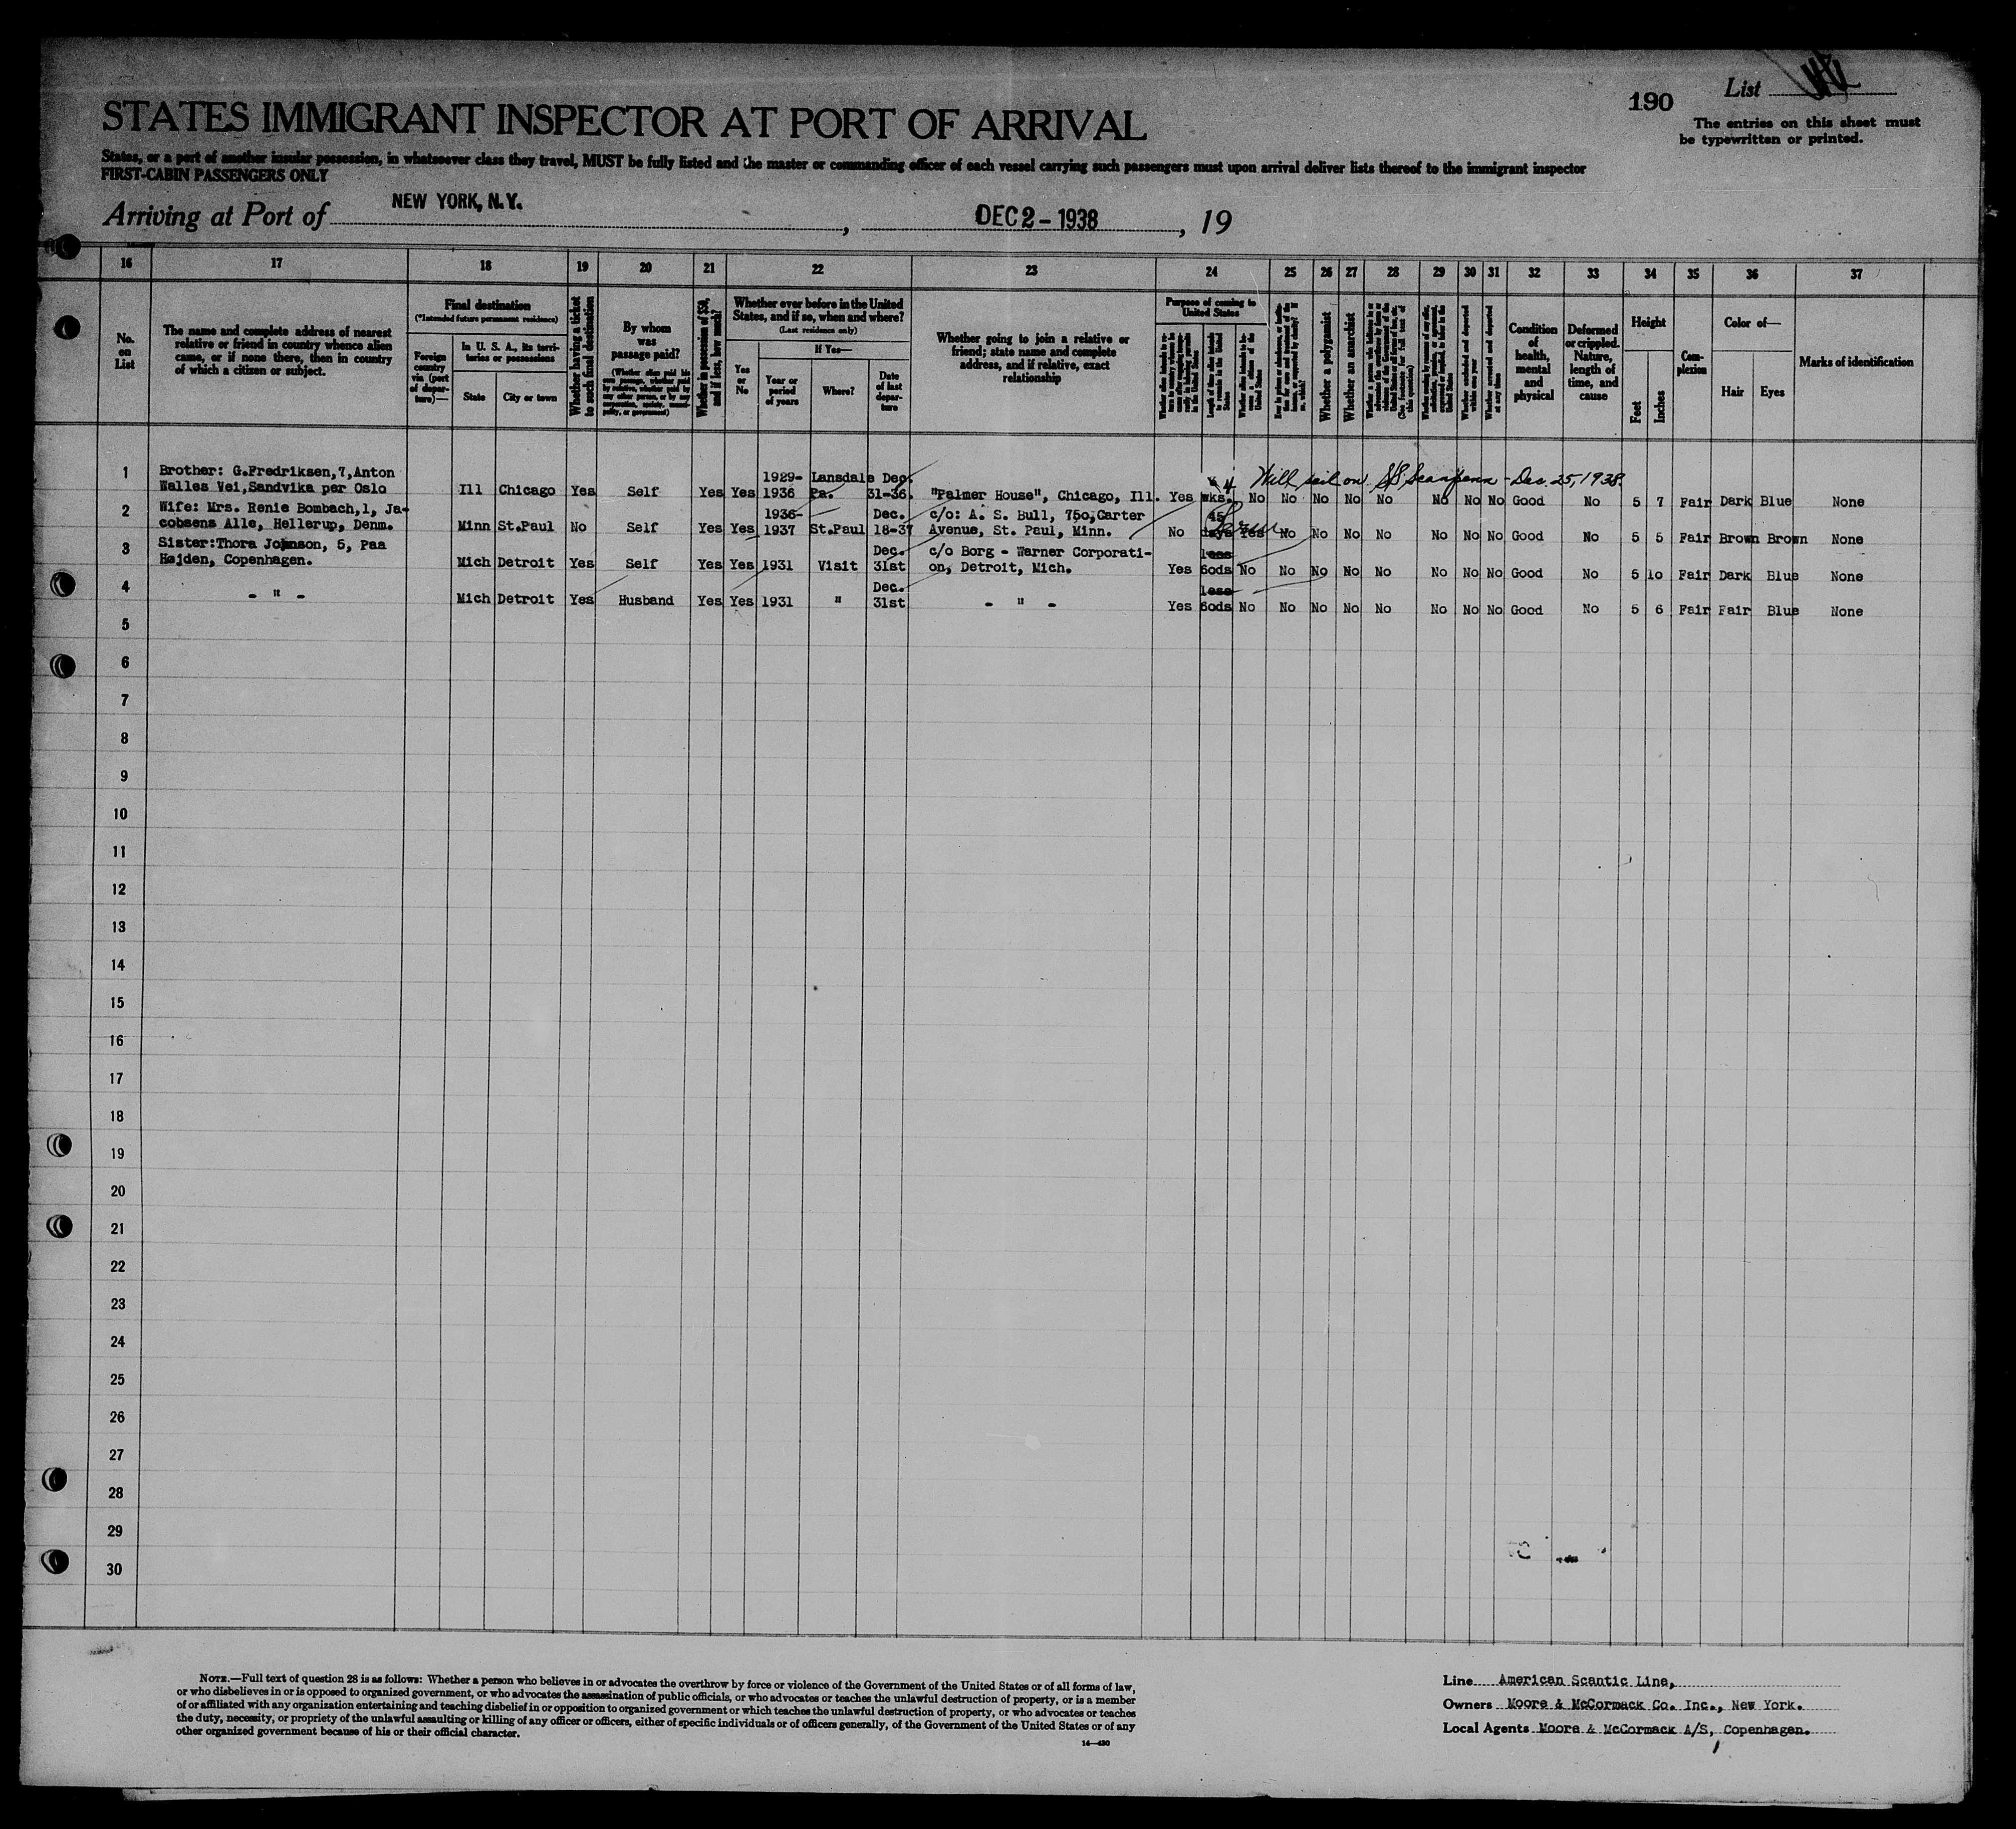 190
List
The entries on this sheet must
be typewritten or printed.
STATES IMMIGRANT INSPECTOR AT PORT OF ARRIVAL
States, or a port of another insular possession, in whatsoever class they travel, MUST be fully listed and the master or commanding officer of each vessel carrying such passengers must upon arrival deliver lists thereof to the immigrant inspector
FIRST-CABIN PASSENGERS ONLY
Arriving at Port of NEW YORK, N.Y. , DEC 2 - 1938 , 19
16 17 18 19 20 21 22 23 24 25 26 27 28 29 30 31 32 33 34 35 36 37
No.
on
List
The name and complete address of nearest
relative or friend in country whence alien
came, or if none there, then in country
of which a citizen or subject.
Final destination
(*Intended future permanent residence)
Foreign
country
via (port
of depar-
ture)—
In U. S. A., its terri-
tories or possessions
State
City or town
Whether having a ticket
to such final destination
By whom
was
passage paid?
(Whether alien paid his
own passage, whether paid
by relative, whether paid by
any other person, or by any
corporation, society, munici-
pality, or government)
Whether in possession of $50,
and if less, how much?
Whether ever before in the United
States, and if so, when and where?
(Last residence only)
Yes
or
No
If Yes—
Year or
period
of years
Where?
Date
of last
depar-
ture
Whether going to join a relative or
friend; state name and complete
address, and if relative, exact
relationship
Purpose of coming to
United States
Length of time alien intends
to remain in the United
States
Whether alien intends to be-
come a citizen of the
United States
Whether a polygamist
Whether an anarchist
Whether excluded and deported
within one year
Whether arrested and deported
at any time
Condition
of
health,
mental
and
physical
Deformed
or crippled.
Nature,
length of
time, and
cause
Height
Feet
Inches
Com-
plexion
Color of—
Hair
Eyes
Marks of identification
Will sail on S/S Scanpenn - Dec. 25, 1938
1 Brother: G.Fredriksen,7,Anton 1929- Lansdale Dec. 4
Walles Vei,Sandvika per Oslo Ill Chicago Yes Self Yes Yes 1936 Pa. 31-36. "Palmer House", Chicago, Ill. Yes wks. No No No No No No No No Good No 5 7 Fair Dark Blue None
2 Wife: Mrs. Renie Bombach,1, Ja- 1936- Dec. c/o: A. S. Bull, 750,Carter 45
cobsens Alle, Hellerup, Denm. Minn St.Paul No Self Yes Yes 1937 St.Paul 18-37 Avenue, St. Paul, Minn. No days Yes No No No No No No No Good No 5 5 Fair Brown Brown None
3 Sister:Thora Johnson, 5, Paa Dec. c/o Borg - Warner Corporati- less
Højden, Copenhagen. Mich Detroit Yes Self Yes Yes 1931 Visit 31st on, Detroit, Mich. Yes 60ds No No No No No No No No Good No 5 10 Fair Dark Blue None
4 Dec. less
- " - Mich Detroit Yes Husband Yes Yes 1931 " 31st - " - Yes 60ds No No No No No No No No Good No 5 6 Fair Fair Blue None
5
6
7
8
9
10
11
12
13
14
15
16
17
18
19
20
21
22
23
24
25
26
27
28
29
30
NOTE.—Full text of question 28 is as follows: Whether a person who believes in or advocates the overthrow by force or violence of the Government of the United States or of all forms of law,
or who disbelieves in or is opposed to organized government, or who advocates the assassination of public officials, or who advocates or teaches the unlawful destruction of property, or is a member
of or affiliated with any organization entertaining and teaching disbelief in or opposition to organized government or which teaches the unlawful destruction of property, or who advocates or teaches
the duty, necessity, or propriety of the unlawful assaulting or killing of any officer or officers, either of specific individuals or of officers generally, of the Government of the United States or of any
other organized government because of his or their official character.
14—430
Line American Scantic Line,
Owners Moore & McCormack Co. Inc., New York.
Local Agents Moore & McCormack A/S, Copenhagen.